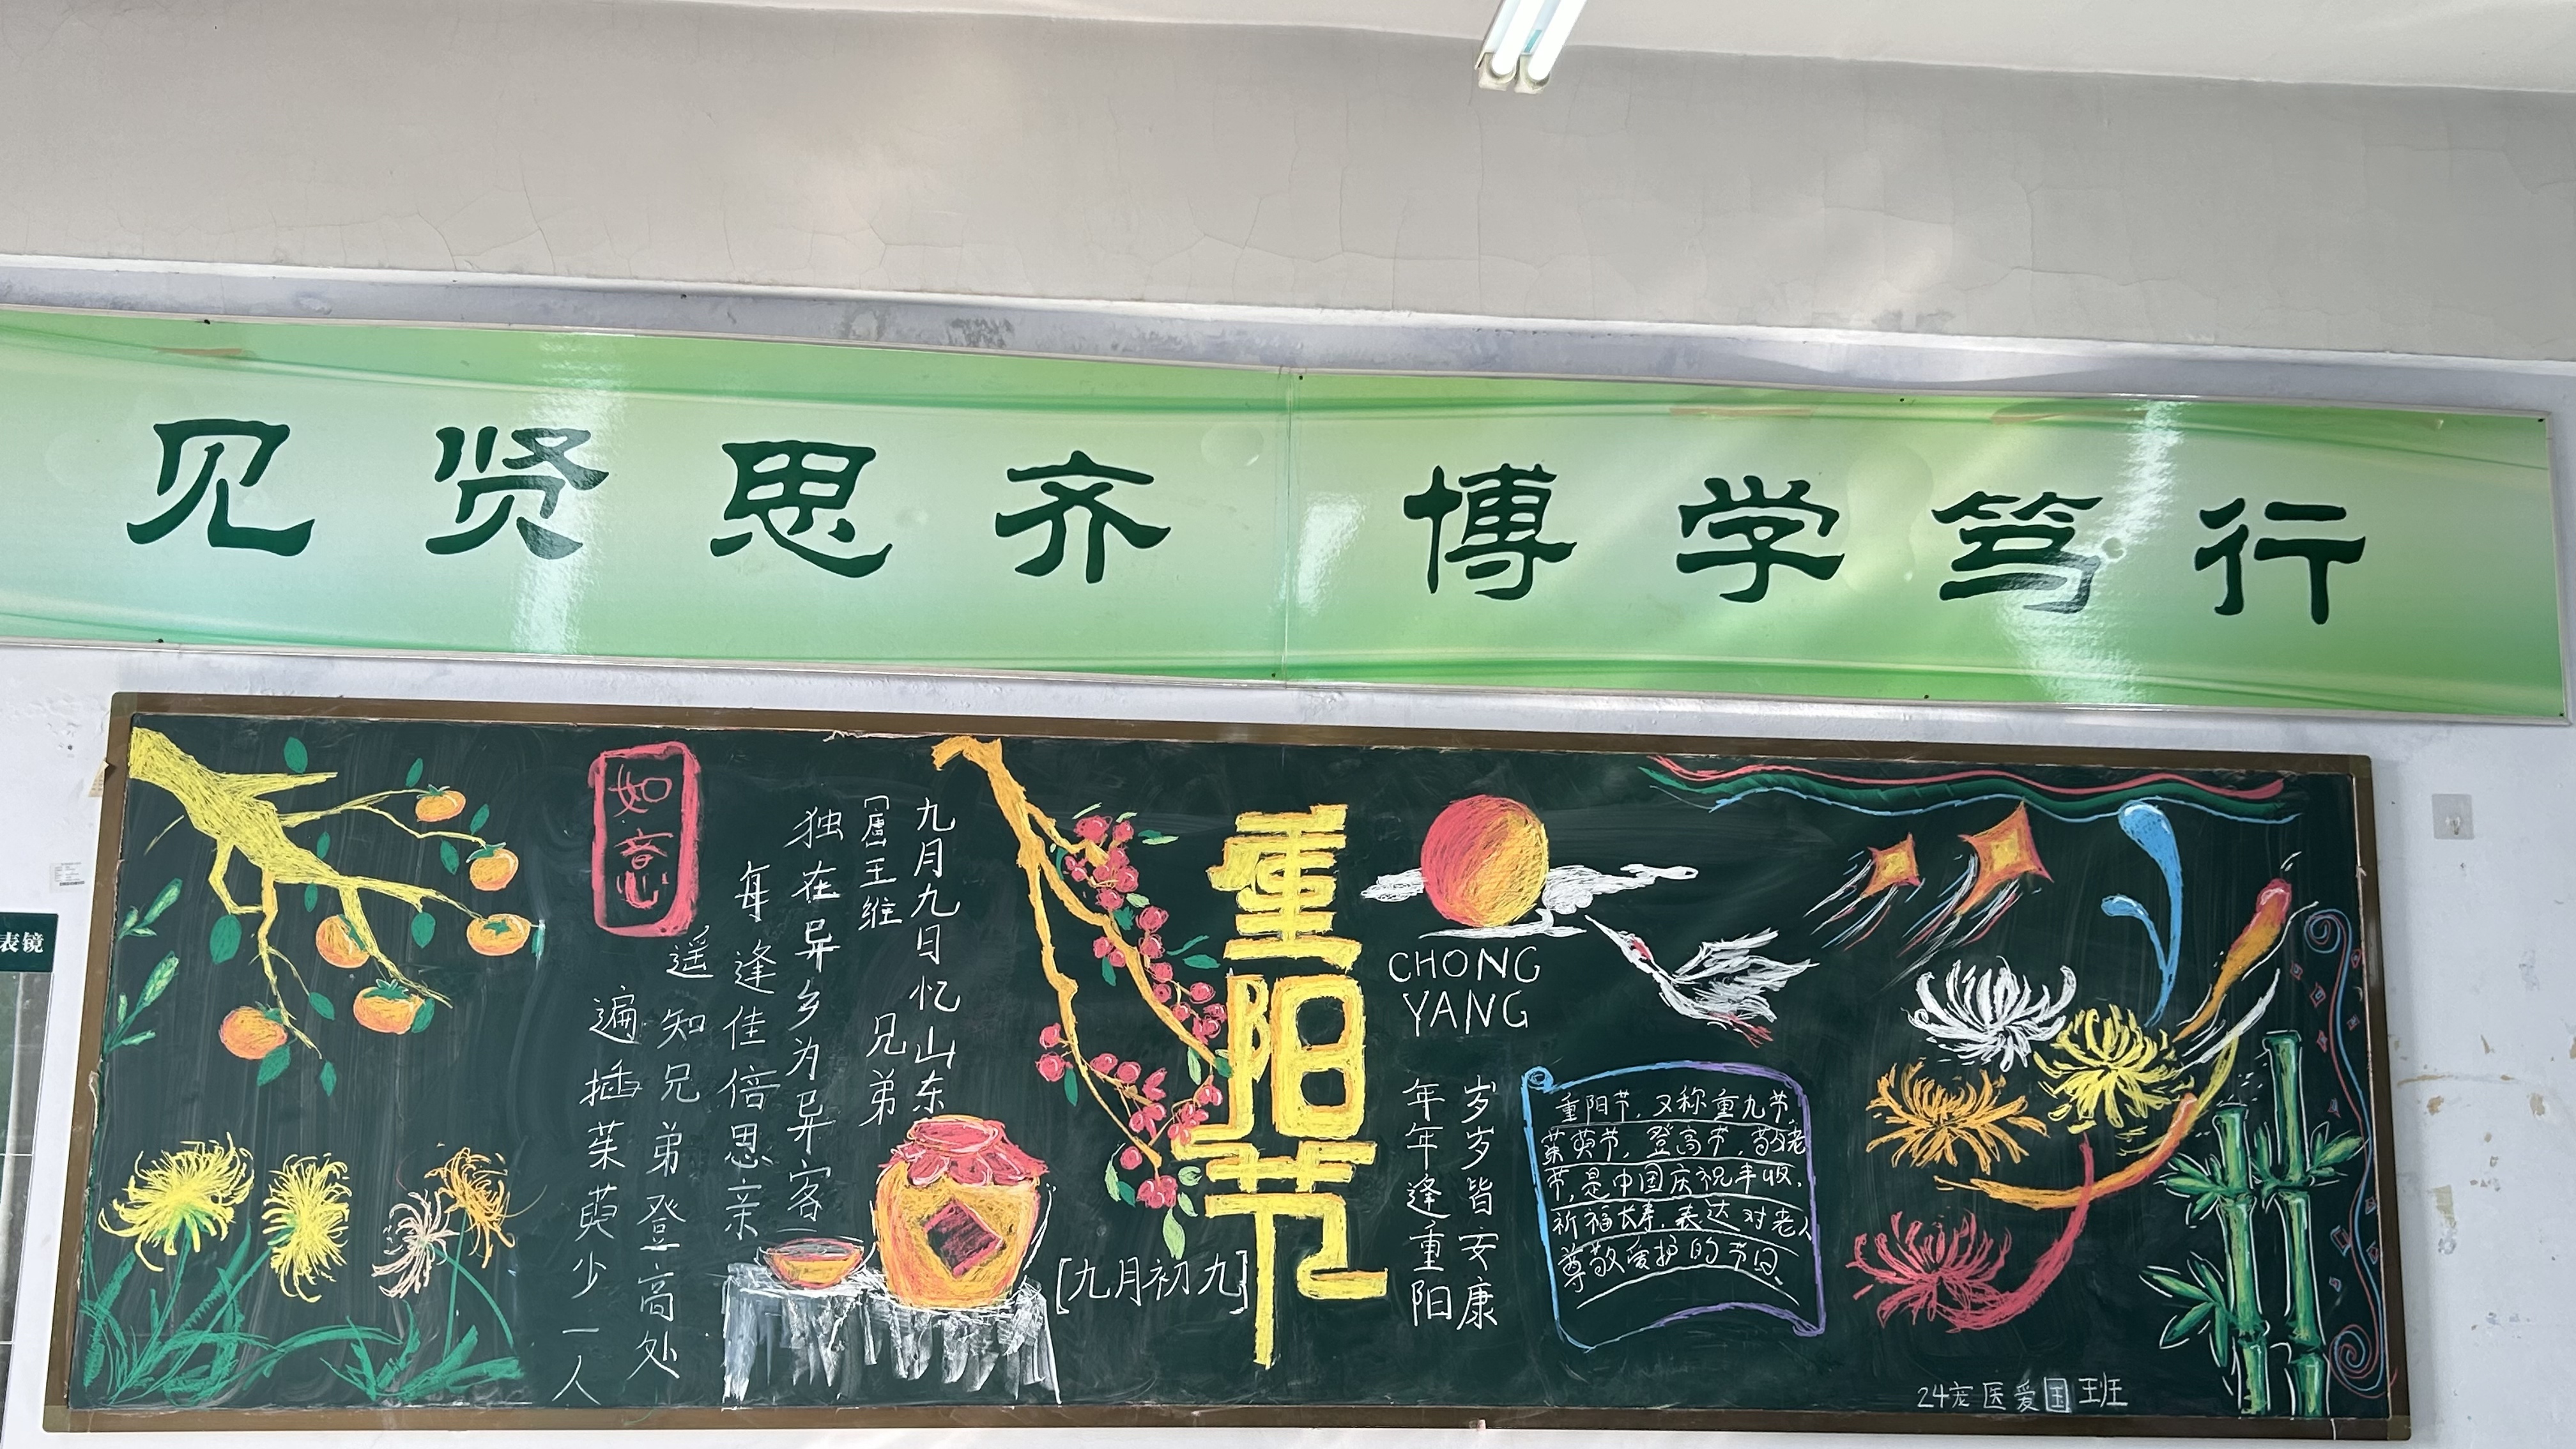 见贤思齐 博学笃行
表镜
如意
九月九日忆山东
兄弟
[唐]王维
独在异乡为异客
每逢佳倍思亲
遥知兄弟登高处
遍插茱萸少一人
重阳节
[九月初九]
CHONG
YANG
岁岁皆安康
年年逢重阳
重阳节,又称重九节,
茱萸节,登高节,敬老
节,是中国庆祝丰收,
祈福长寿,表达对老人
尊敬爱护的节日
24宠医爱国班